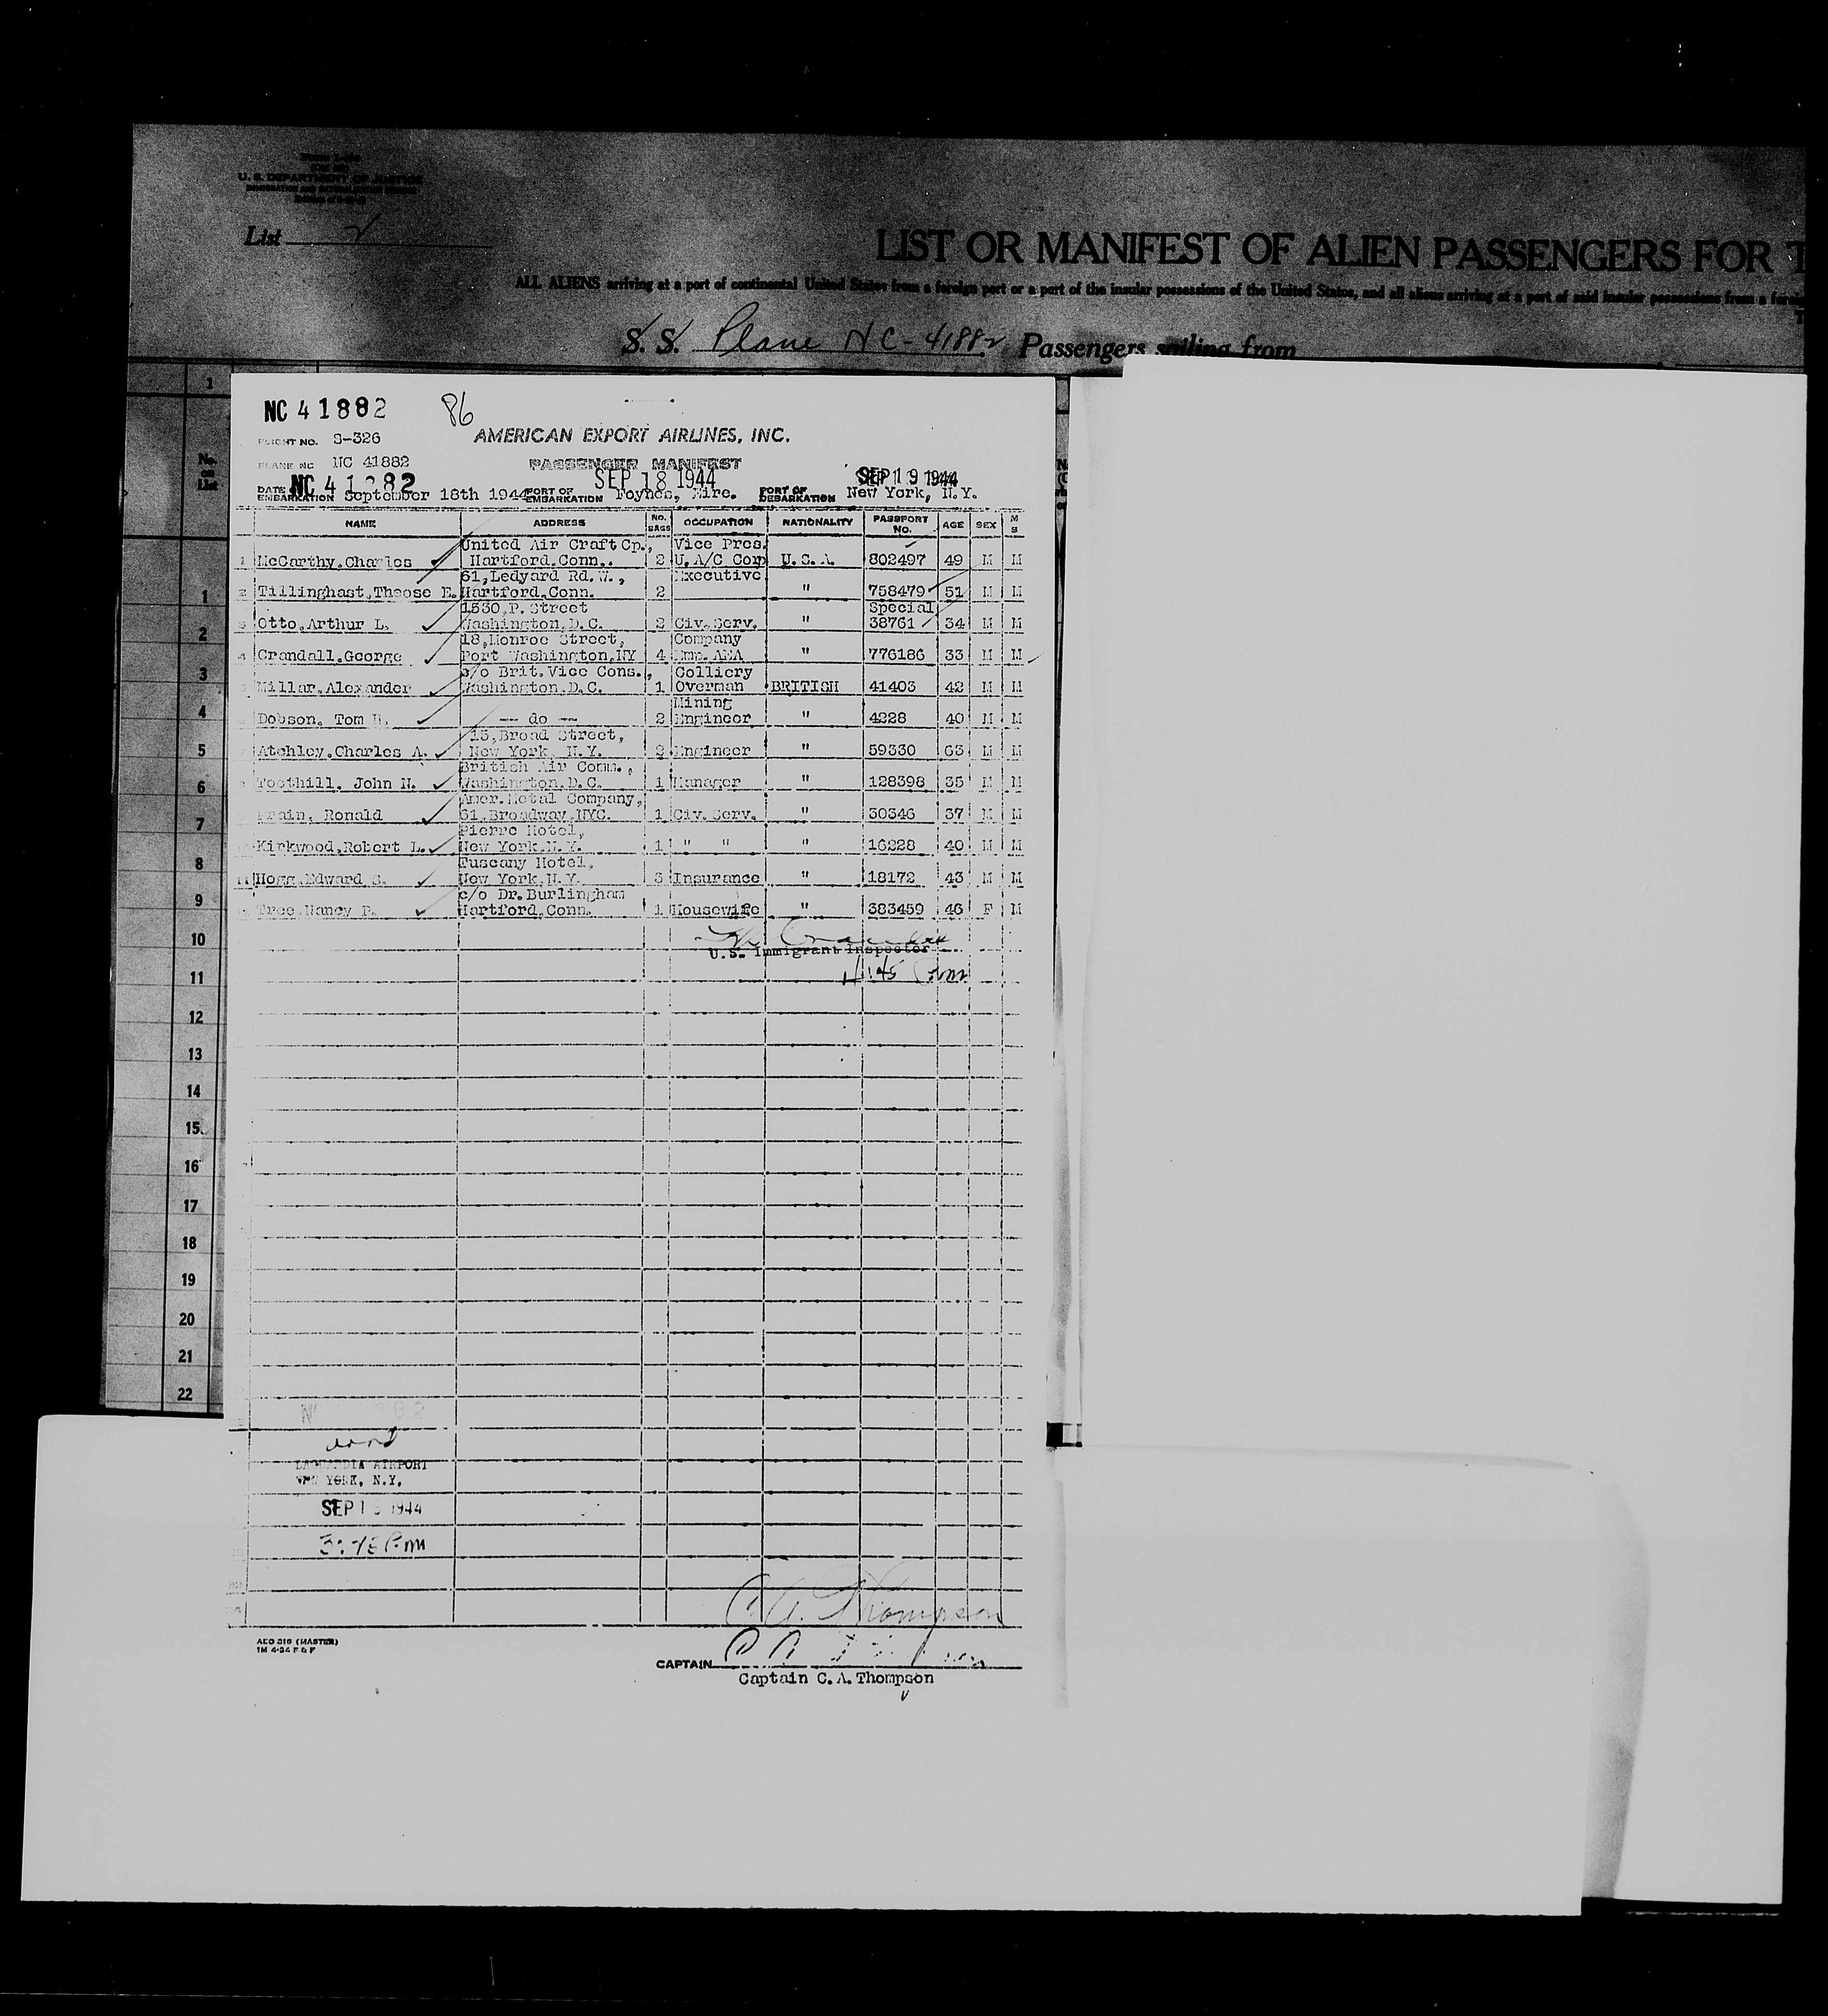 U. S. DEPARTMENT OF JUSTICE
List
LIST OR MANIFEST OF ALIEN PASSENGERS FOR T
ALL ALIENS arriving at a port of continental United States from a foreign port or a port of the insular possessions of the United States, and all aliens arriving at a port of said insular possessions from a forei
S. S. Plane NC-41882 Passengers sailing from
1
No. on List
NC 41882
86
FLIGHT NO. S-326
AMERICAN EXPORT AIRLINES, INC.
PLANE NO NC 41882
PASSENGER MANIFEST
SEP 18 1944
SEP 19 1944
DATE EMBARKATION September 18th 1944 PORT OF EMBARKATION Foynes, Eire. PORT OF DEBARKATION New York, N.Y.
NAME ADDRESS NO. BAGS OCCUPATION NATIONALITY PASSPORT NO. AGE SEX M S
United Air Craft Cp., Vice Pres.
1 McCarthy,Charles Hartford,Conn. 2 U.A/C Corp U.S.A. 802497 49 M M
61,Ledyard Rd.W., Executive
2 Tillinghast,Theose E. Hartford,Conn. 2 " 758479 51 M M
1530,P.Street Special
3 Otto,Arthur L. Washington,D.C. 2 Civ.Serv. " 38761 34 M M
18,Monroe Street, Company
4 Crandall,George Port Washington,NY 4 Emp.AEA " 776186 33 M M
c/o Brit.Vice Cons., Colliery
Millar,Alexander Washington,D.C. 1 Overman BRITISH 41403 42 M M
Mining
Dobson, Tom -- do -- 2 Engineer " 4228 40 M M
15,Broad Street,
Atchley,Charles A. New York, N.Y. 2 Engineer " 59330 63 M M
British Air Comm.,
Toothill, John N. Washington,D.C. 1 Manager " 128398 35 M M
Amer.Metal Company,
Prain, Ronald 61,Broadway,NYC. 1 Civ.Serv. " 30346 37 M M
Pierre Hotel,
Kirkwood,Robert L. New York,N.Y. 1 " " " 16228 40 M M
Tuscany Hotel,
11 Hogg,Edward S. New York,N.Y. 3 Insurance " 18172 43 M M
c/o Dr.Burlingham
Tree,Nancy P. Hartford,Conn. 1 Housewife " 383459 46 F M
U.S. Immigrant Inspector
1
2
3
4
5
6
7
8
9
10
11
12
13
14
15
16
17
18
19
20
21
22
LAGUARDIA AIRPORT
NEW YORK, N.Y.
SEP 1 1944
3:45 P.m
C.A. Thompson
(MASTER)
CAPTAIN
Captain C.A.Thompson